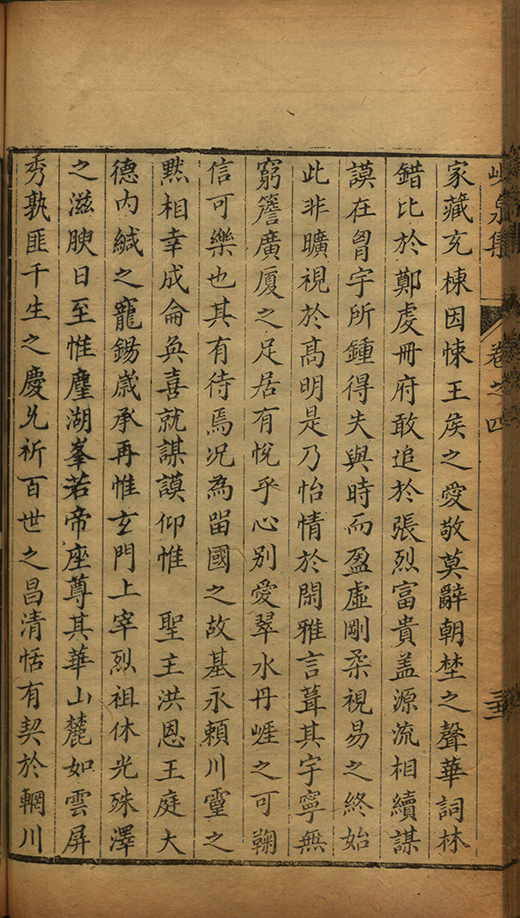 峴泉集 卷之四 三
家藏充棟因悚王侯之愛敬莫辭朝埜之聲華詞林
錯比於鄭䖍冊府敢追於張烈富貴盖源流相續謀
謨在胷宇所鍾得失與時而盈虛剛柔視易之終始
此非曠視於髙明是乃怡情於閑雅言葺其宇寧無
窮簷廣厦之足居有悅乎心別愛翠水丹崕之可鞠
信可樂也其有待焉况為畱國之故基永頼川靈之
黙相幸成侖奐喜就謀謨仰惟 聖主洪恩王庭大
德内緘之寵錫嵗承再惟玄門上宰烈祖休光殊澤
之滋腴日至惟塵湖峯若帝座尊其華山麓如雲屏
秀孰匪千生之慶允祈百世之昌清恬有契於輞川